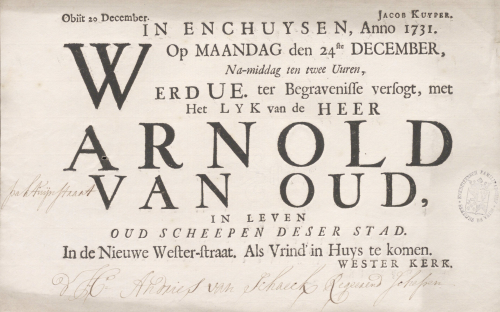 Obiit 20 December. JACOB KUYPER.
IN ENCHUYSEN, Anno 1731.
Op MAANDAG den 24ste DECEMBER,
Na-middag ten twee Uuren,
WERD UE. ter Begravenisse versogt, met
Het LYK van de HEER
ARNOLD
VAN OUD,
IN LEVEN
OUD SCHEEPEN DESER STAD.
In de Nieuwe Wester-straat. Als Vrind in Huys te komen.
WESTER KERK.
van